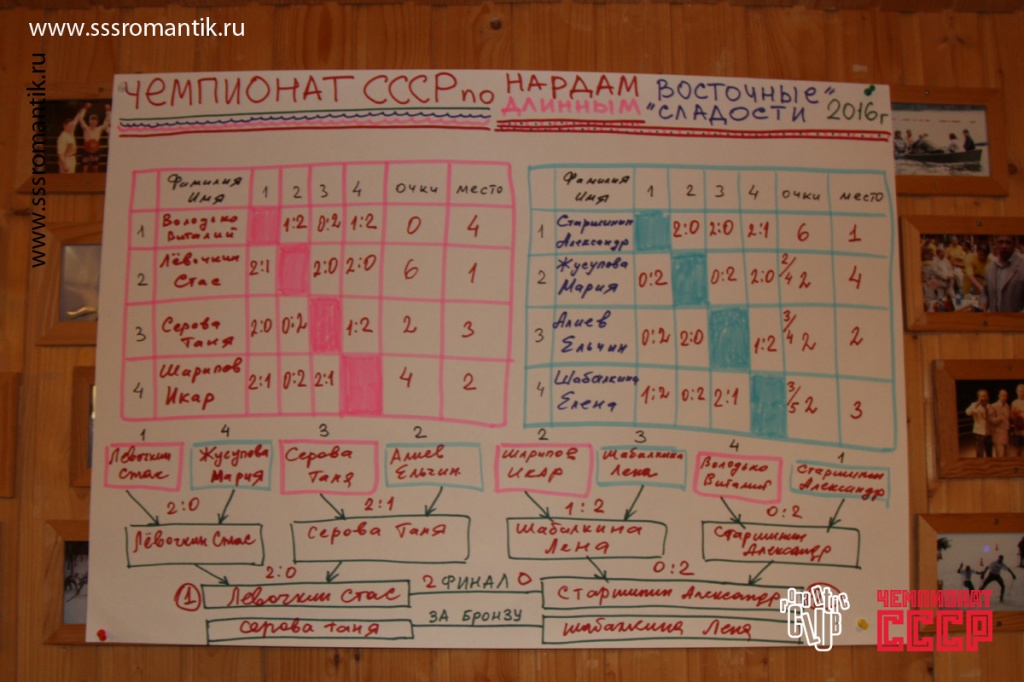 www.sssromantik.ru
www.sssromantik.ru
ЧЕМПИОНАТ СССР по НАРДАМ ВОСТОЧНЫЕ"
ДЛИННЫМ "СЛАДОСТИ 2016г
Фамилия Имя 1 2 3 4 очки место
1 Володько Виталий 1:2 0:2 1:2 0 4
2 Лёвочкин Стас 2:1 2:0 2:0 6 1
3 Серова Таня 2:0 0:2 1:2 2 3
4 Шарипов Икар 2:1 0:2 2:1 4 2
Фамилия Имя 1 2 3 4 очки место
1 Старшинин Александр 2:0 2:0 2:1 6 1
2 Жусупова Мария 0:2 0:2 2:0 2/4 2 4
3 Алиев Ельчин 0:2 2:0 1:2 3/4 2 2
4 Шабалкина Елена 1:2 0:2 2:1 3/5 2 3
1 4 3 2 2 3 4 1
Лёвочкин Стас
Жусупова Мария
Серова Таня
Алиев Ельчин
Шарипов Икар
Шабалкина Лена
Володько Виталий
Старшинин Александр
2:0 2:1 1:2 0:2
Лёвочкин Стас
Серова Таня
Шабалкина Лена
Старшинин Александр
2:0 0:2
1 Лёвочкин Стас 2 ФИНАЛ 0 Старшинин Александр
Серова Таня ЗА БРОНЗУ Шабалкина Лена
romantic
CLUB
ЧЕМПИОНАТ
СССР